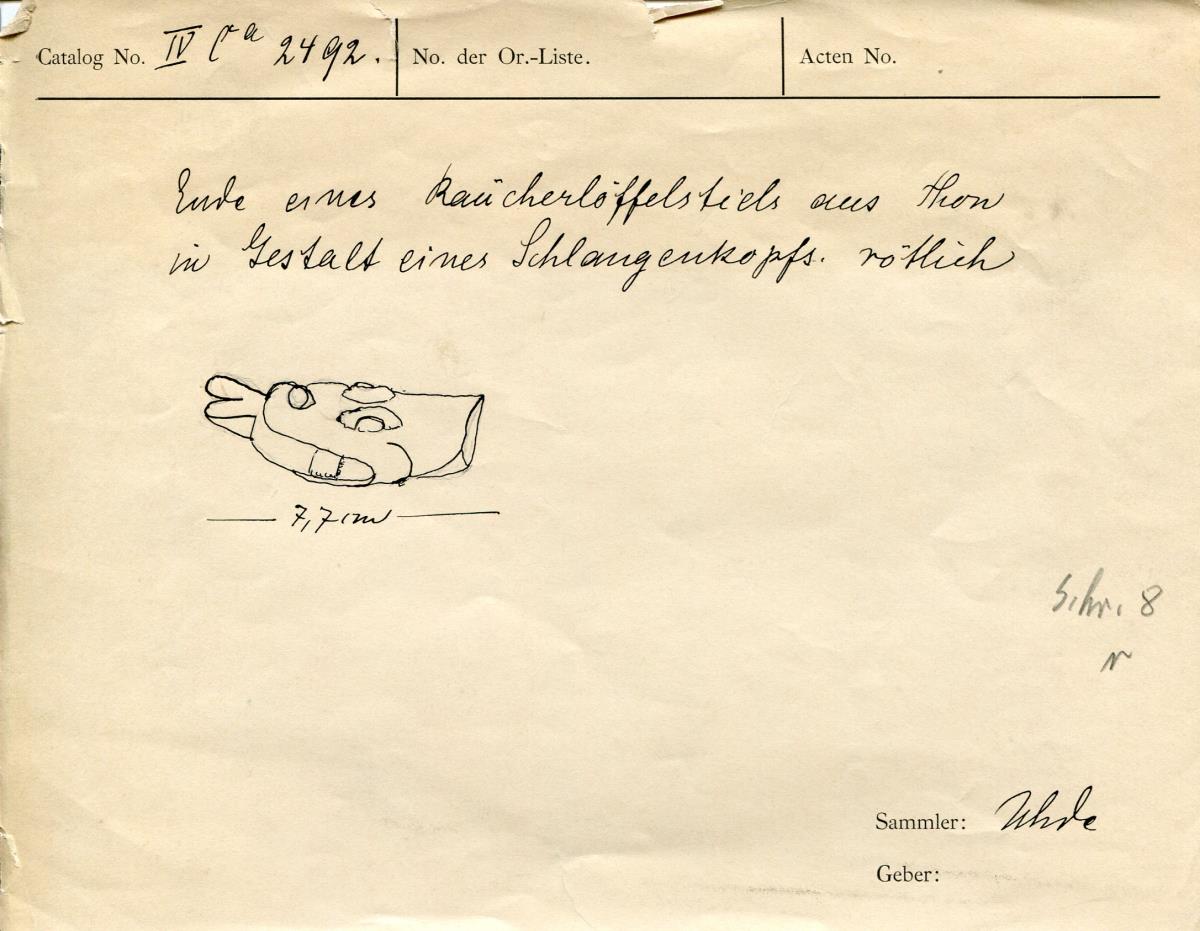 Catalog No. IV Ca 2492. No. der Or.-Liste. Acten No.
Ende eines Räucherlöffelstiels aus Thon
in Gestalt eines Schlangenkopfs. rötlich
7,7 cm
Schr. 8
Sammler: Uhde
Geber: